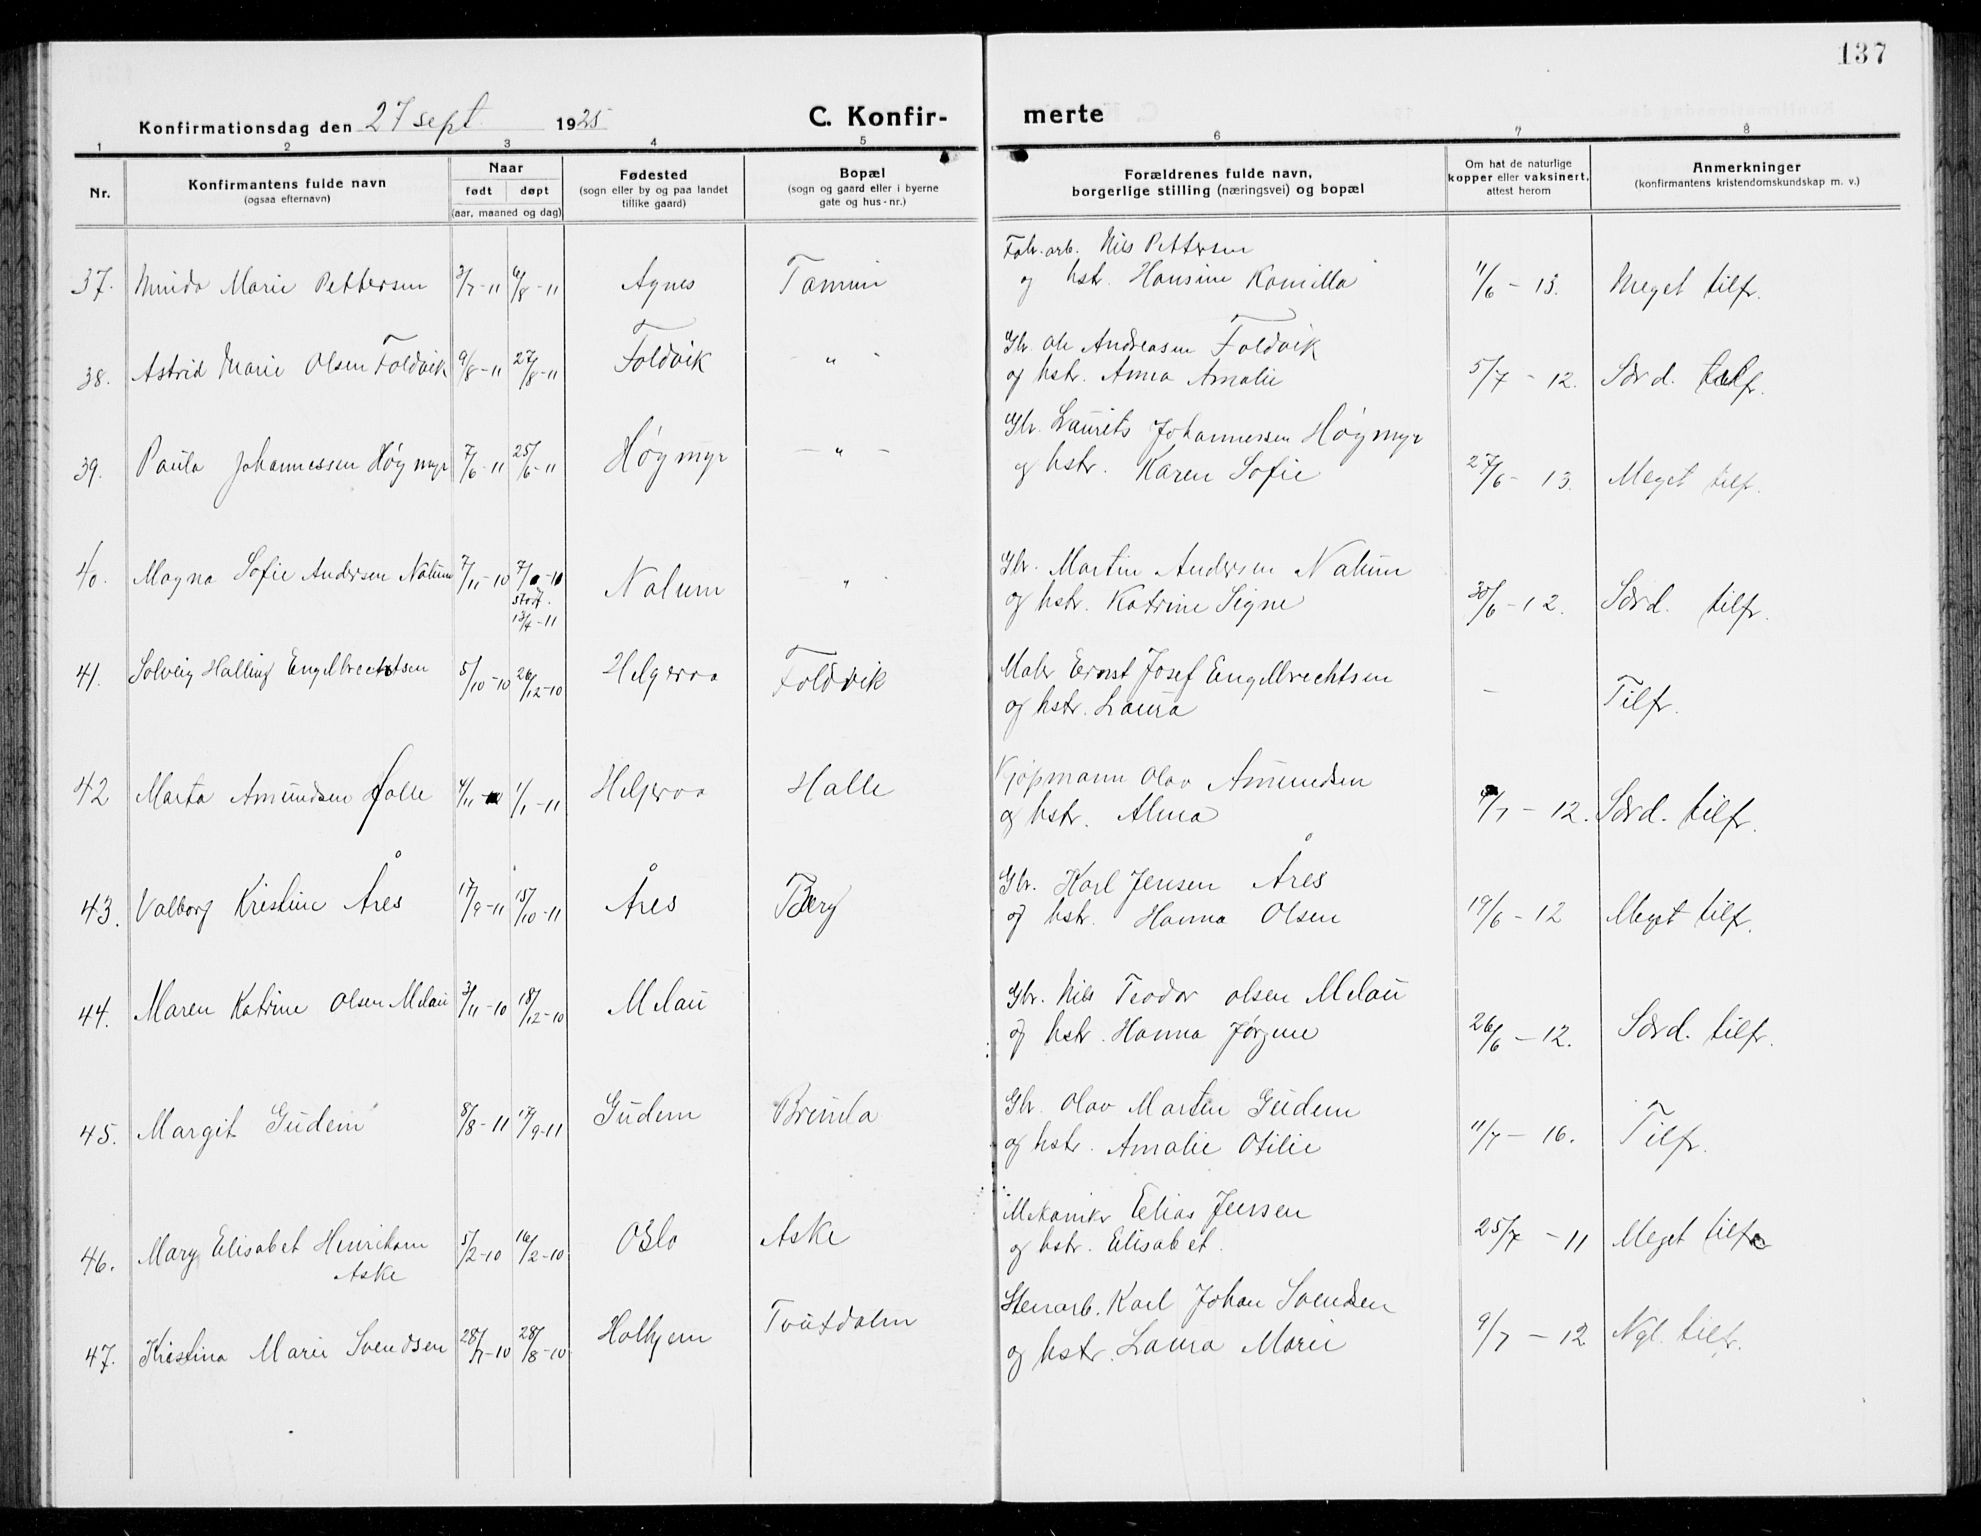 137
Konfirmationsdag den 27 sept. 1925
C. Konfir-
merte
1 2 3 4 5 6 7 8
Nr.
Konfirmantens fulde navn
(ogsaa efternavn)
Naar
født døpt
(aar, maaned og dag)
Fødested
(sogn eller by og paa landet
tillike gaard)
Bopæl
(sogn og gaard eller i byerne
gate og hus-nr.)
Forældrenes fulde navn,
borgerlige stilling (næringsvei) og bopæl
Om hat de naturlige
kopper eller vaksinert,
attest herom
Anmerkninger
(konfirmantens kristendomskundskap m. v.)
Nils Pettersen
37. Marie Pettersen 3/7-11 6/8-11 Agnes
og hstr. Hansine Kamilla 11/6 - 13. Meget tilfr.
Gbr. Ole Andreasen Foldvik
38. Astrid Marie Olsen Foldvik 9/8-11 27/8-11 Foldvik - " -
og hstr. Anna Amalie 5/7 - 12. Særd. tilfr.
Gbr. Laurits Johannessen Høgmyr
39. Paula Johannessen Høgmyr 7/6-11 25/6-11 Høgmyr - " -
og hstr. Karen Sofie 27/6 - 13. Meget tilf.
Gbr. Martin Andersen Nalum
40. Magna Sofie Andersen Nalum 7/11-10 Nalum "
stadf.
13/4-11
og hstr. Katrine Signe 30/6 - 12. Særd. tilfr.
41. Solveig Halling Engelbrechtsen 5/10-10 26/12-10 Helgeroa Foldvik
Maler Ernst Josef Engelbrechtsen
og hstr. Laura - Tilfr.
42 Marta Amundsen Halle 1/1-11 Helgeroa Halle
Kjøpmann Olav Amundsen
og hstr. Alma /7 - 12. Særd. tilfr.
43. Valborg Kristine Åres 17/9-11 15/10-11 Åres Berg
Gbr. Karl Jensen Åres
og hstr. Hanna Olsen 19/6 - 12 Meget tilfr.
44. Maren Katrine Olsen Melau 3/11-10 18/12-10 Melau
Gbr. Nils Teodor Olsen Melau
og hstr. Hanna Jørgine 26/6 - 12. Særd. tilfr.
45. Margit Gudem 8/8-11 17/9-11 Gudem Brunla
Gbr. Olav Martin Gudem
og hstr. Amalie Otilie 11/7 - 16. Tilfr.
46. Mary Elisabet Henriksen 5/2-10 16/2-10 Oslo Aske
Aske
Mekaniker Elias Jensen
og hstr. Elisabet. 25/7 - 11 Meget tilfr
47. Kristina Marie Svendsen 28/7-10 28/8-10 Holhjem Tvetdalen
Stenarb. Karl Johan Svendsen
og hstr. Laura Marie 9/7 - 12 Ngl. tilfr.